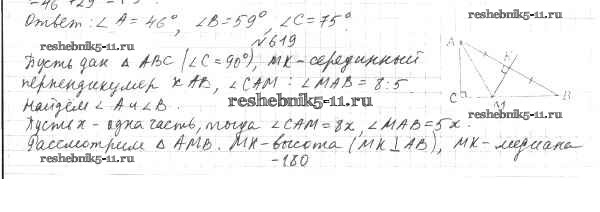 Ответ: ∠A = 46°, ∠B = 59°, ∠C = 75°.
reshebnik5-11.ru
reshebnik5-11.ru
№619
Пусть дан △ ABC (∠C = 90°), MK - серединный
перпендикуляр к AB, ∠CAM : ∠MAB = 8:5.
Найдём ∠A и ∠B.
reshebnik5-11.ru
A
K
C
M
B
reshebnik5-11.ru
Пусть x - одна часть, тогда ∠CAM = 8x, ∠MAB = 5x.
Рассмотрим △ AMB. MK - высота (MK ⊥ AB), MK - медиана
reshebnik5-11.ru
-180